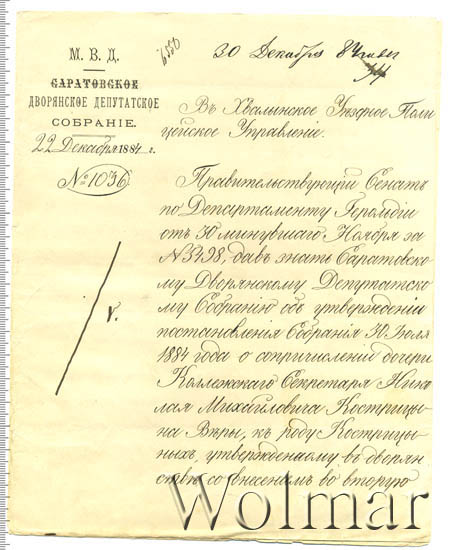 М. В. Д.
САРАТОВСКОЕ
ДВОРЯНСКОЕ ДЕПУТАТСКОЕ
СОБРАНІЕ.
22 Декабря 1884 г.
№ 1036
6550
30 Декабря 84
Въ Хвалынское Уѣздное Поли
цейское Управленіе.
Правительствующій Сенатъ
по Департаменту Герольдіи
отъ 30 минувшаго Ноября за
№ 5498, давъ знать Саратовско
му Дворянскому Депутатско
му Собранію объ утвержденіи
постановленія Собранія 30 Іюля
1884 года о сопричисленіи дочери
Коллежскаго Секретаря Нико
лая Михайловича Кострицы
на Вѣры, къ роду Кострицы
ныхъ, утвержденному въ дворян
ствѣ со внесеніемъ во вторую
Wolmar